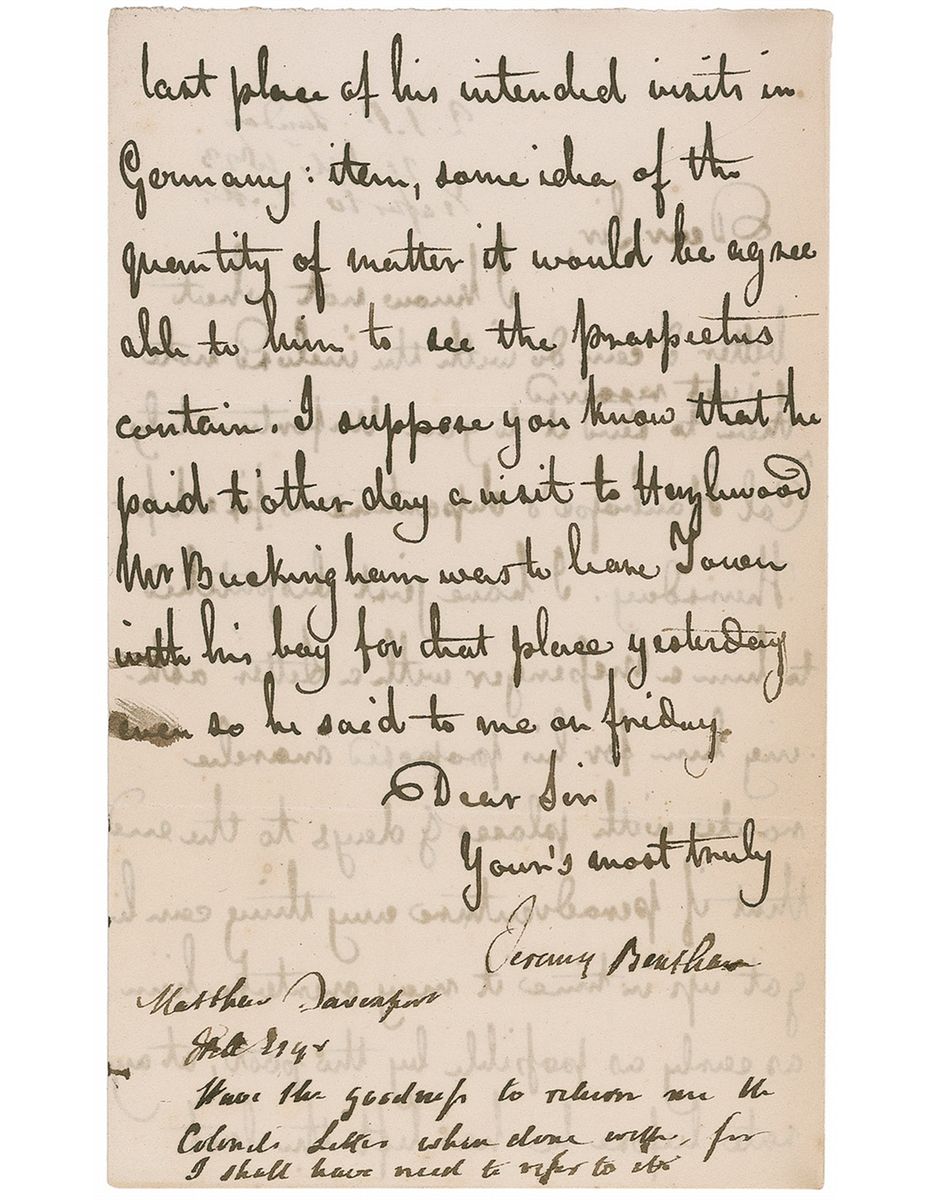 last place of his intended visits in
Germany: item, some idea of the
quantity of matter it would be agree
able to him to see the prospectus
contain. I suppose you know that he
paid t'other day a visit to Hazlewood
Mr Buckingham was to leave Town
with his boy for that place yesterday
even so he said to me on friday.
Dear Sir
Your's most truly
Jeremy Bentham
Matthew Davenport
Hill Esqr
Have the goodness to return me the
Colonel's Letter when done with, for
I shall have need to refer to it